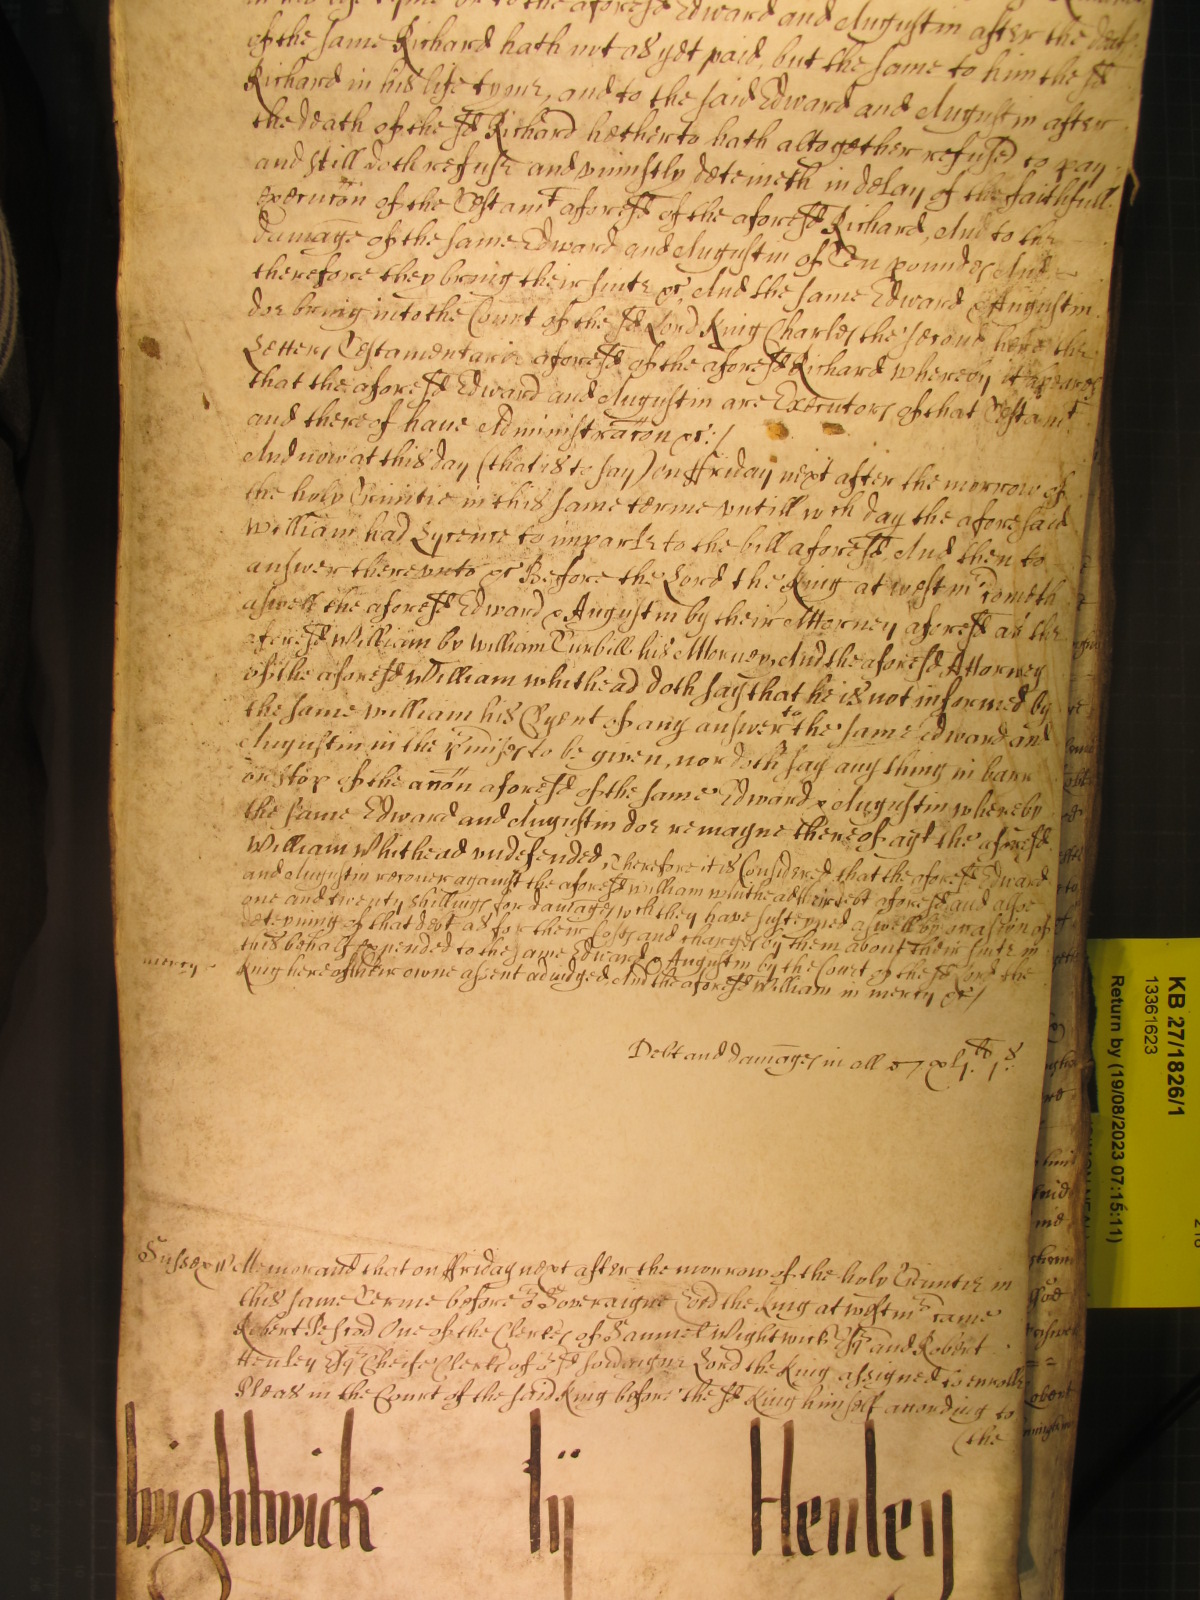 in his life tyme or to the aforesd Edward and Augustin after the death
of the same Richard hath not as yet paid, but the same to him the sd
Richard in his life tyme, and to the said Edward and Augustin after
the death of the sd Richard hetherto hath altogether refused to pay
and still doth refuse and uniustly deteineth in delay of the faithfull
execucon of the Testamt aforesd of the aforesd Richard, And to the
damage of the same Edward and Augustin of Ten pounds, And
therefore they bring their suite &c, And the same Edward & Augustin
doe bring into the Court of the sd Lord King Charles the second here the
Letters Testamentarie aforesd of the aforesd Richard whereby it apeares
that the aforesd Edward and Augustin are Executors of that Testamt
and thereof have Administracon &c:/
And now at this day (that is to say) on ffriday next after the morrow of
the holy Trinitie in this same terme untill wch day the aforesaid
William had Lycence to imparle to the bill aforesd, And then to
answer thereunto &c Before the Lord the King at westmr cometh
aswell the aforesd Edward & Augustin by their Attorney aforesd as the
aforesd William by William Turbill his Attorney, And the aforesd Attorney
of the aforesd William Whithead doth say that he is not informed by
the same William his Clyent of any answer to the same Edward and
Augustin in the pmises to be given, nor doth say any thing in barr
or stop of the accon aforesd of the same Edward & Augustin whereby
the same Edward and Augustin doe remayne thereof agt the aforesd
William Whithead undefended, Therefore it is Considered that the aforesd Edward
and Augustin recover against the aforesd William Whithead their debt aforesd and alsoe
one and twenty shillings for damages wch they have susteyned aswell by occasion of
deteyning of that debt as for their costs and charges by them about their suite in
this behalf expended to the same Edward & Augustin by the Court of the sd Lord the
mercy
King here of their owne assent adiudged, And the aforesd William in mercy &c/
Debt and damages in all xlj li js
Sussex Memorand that on ffriday next after the morrow of the holy Trinitie in
this same Terme before or Soveraigne Lord the King at westmr came
Robert Pescod One of the Clerks of Samuel Wightwick Esqr and Robert
Henley Esqr Cheife Clerks of or sd soveraigne Lord the King assigned to enrolle
Pleas in the Court of the said King before the sd King himself according to
(the
Wightwick lij Henley
KB 27/1826/1
13361623
Return by (19/08/2023 07:15:11)